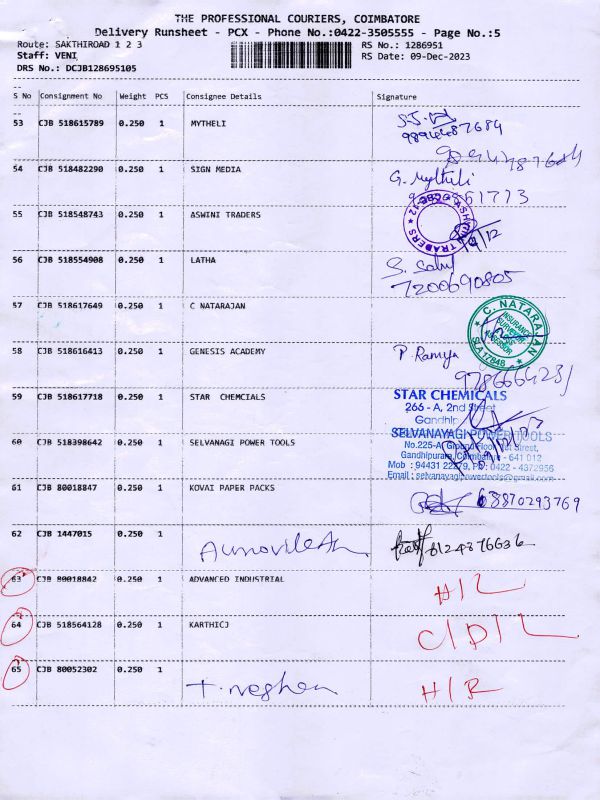 THE PROFESSIONAL COURIERS, COIMBATORE
Delivery Runsheet - PCX - Phone No.:0422-3505555 - Page No.:5
Route: SAKTHIROAD 1 2 3 RS No.: 1286951
Staff: VENI RS Date: 09-Dec-2023
DRS No.: DCJB128695105
S No Consignment No Weight PCS Consignee Details Signature
53 CJB 518615789 0.250 1 MYTHELI
9894487684
54 CJB 518482290 0.250 1 SIGN MEDIA G. Mytheli
55 CJB 518548743 0.250 1 ASWINI TRADERS
56 CJB 518554908 0.250 1 LATHA
7200690805
57 CJB 518617649 0.250 1 C NATARAJAN C. NATARAJAN
INSURANCE
SURVEYOR
SLA 17848
58 CJB 518616413 0.250 1 GENESIS ACADEMY P. Ramya
59 CJB 518617718 0.250 1 STAR CHEMCIALS STAR CHEMICALS
266 - A, 2nd Street
60 CJB 518398642 0.250 1 SELVANAGI POWER TOOLS SELVANAYAGI POWER TOOLS
No.225-A, Ground Floor, 1st Street,
Gandhipuram, Coimbatore - 641 012
Mob : 94431 22279, PH: 0422 - 4372956
Email : selvanayagipowertools@gmail.com
61 CJB 80018847 0.250 1 KOVAI PAPER PACKS 68870293769
62 CJB 1447015 0.250 1 8124876636
63 CJB 80018842 0.250 1 ADVANCED INDUSTRIAL H/L
64 CJB 518564128 0.250 1 KARTHICJ C/D/L
65 CJB 80052302 0.250 1 H/R